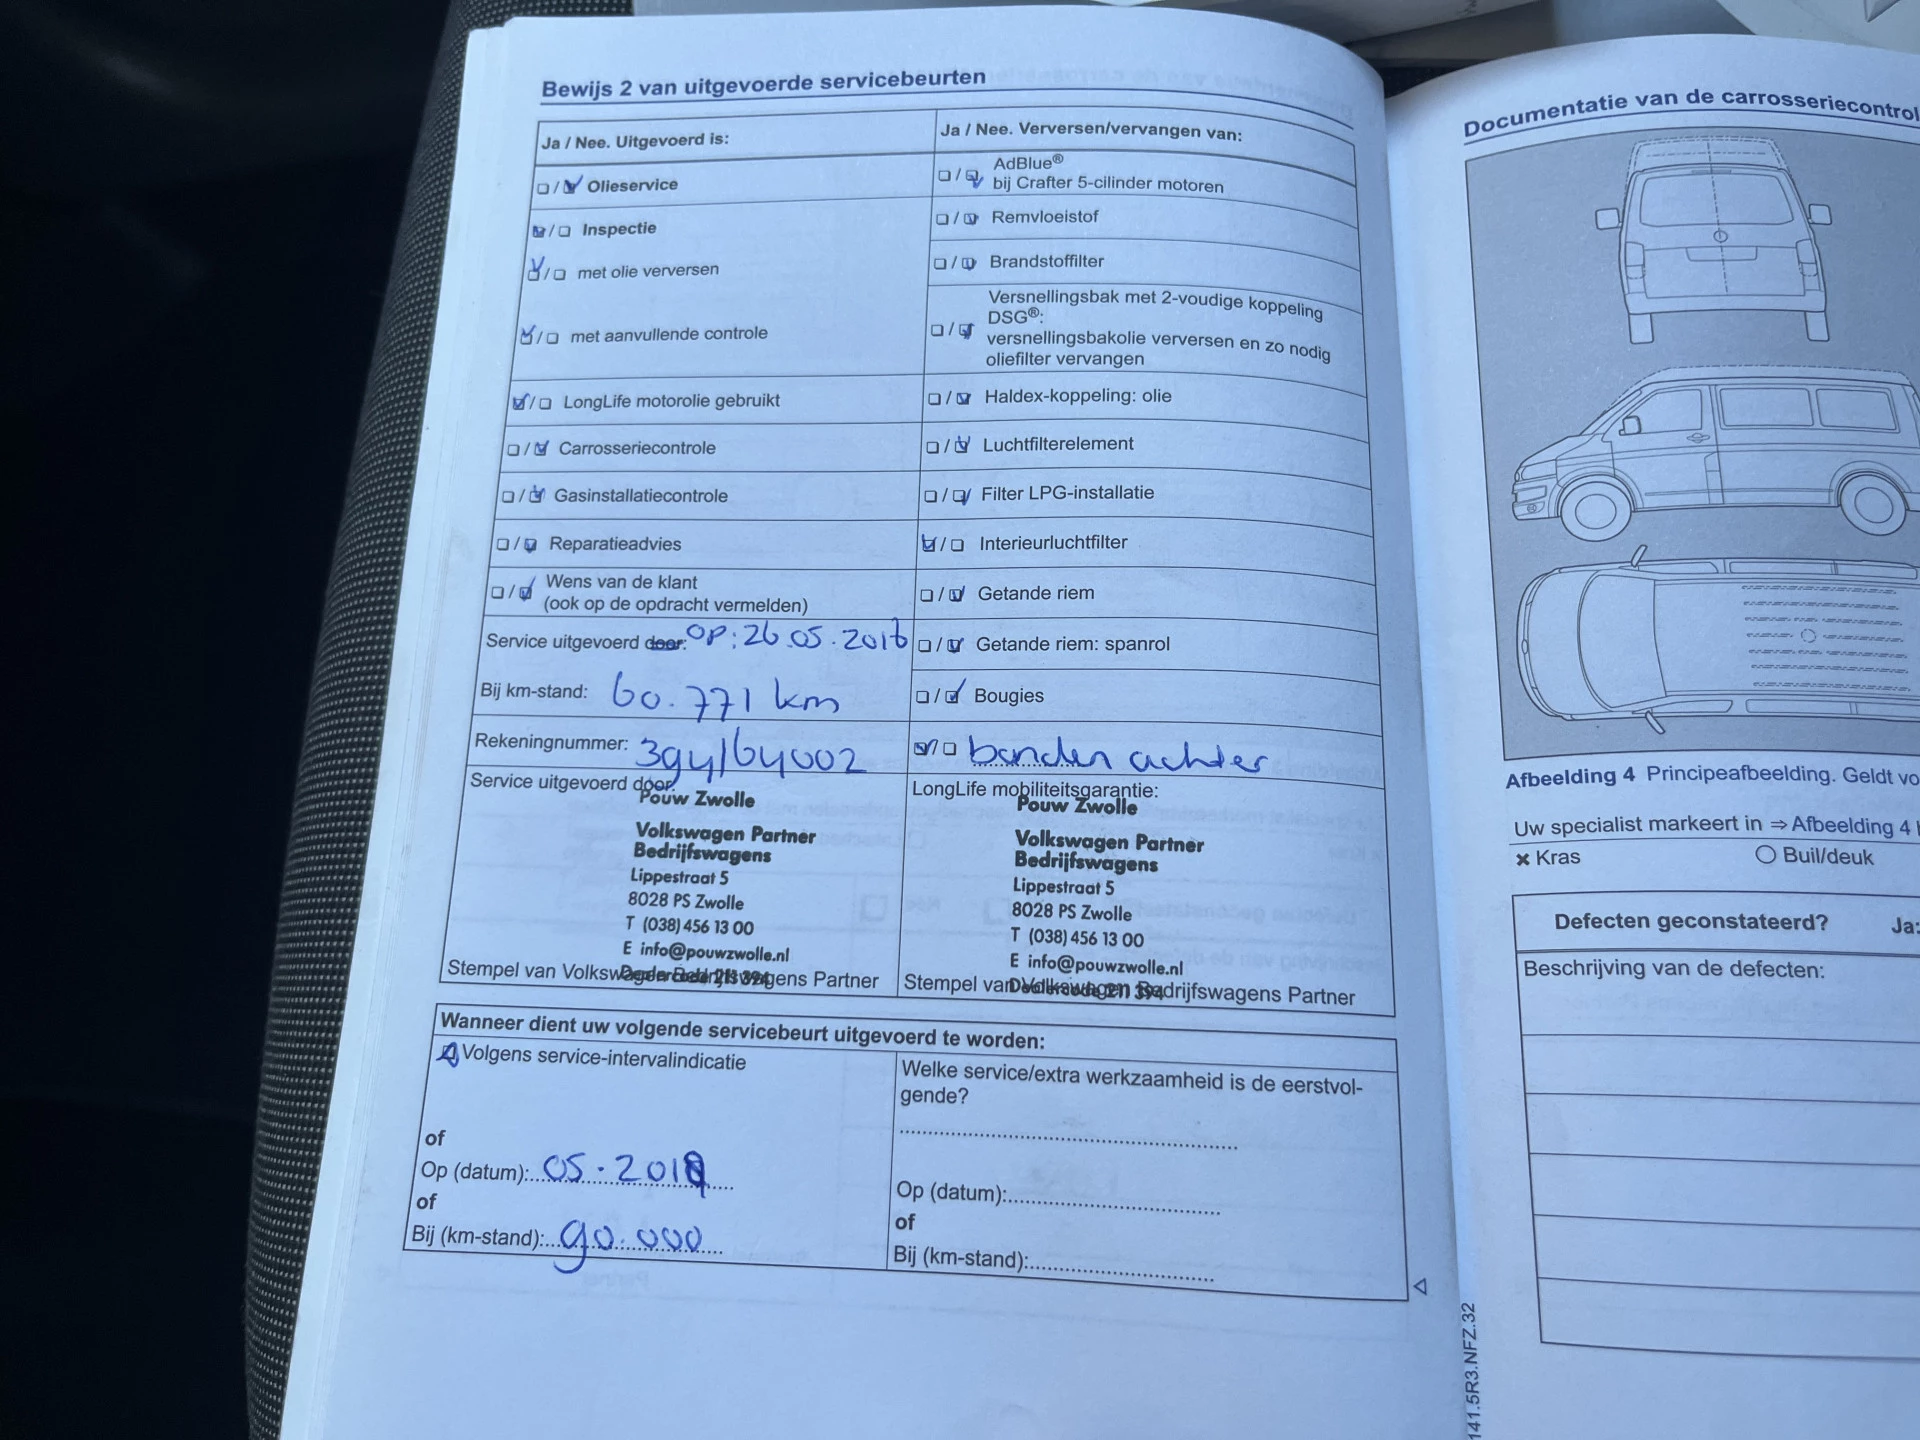 Bewijs 2 van uitgevoerde servicebeurten
Ja / Nee. Uitgevoerd is:
/ Olieservice
/ Inspectie
/ met olie verversen
/ met aanvullende controle
/ LongLife motorolie gebruikt
/ Carrosseriecontrole
/ Gasinstallatiecontrole
/ Reparatieadvies
/ Wens van de klant
(ook op de opdracht vermelden)
Service uitgevoerd door: OP: 26.05.2016
Bij km-stand: 60.771 km
Rekeningnummer: 394164002
Service uitgevoerd door:
Pouw Zwolle
Volkswagen Partner
Bedrijfswagens
Lippestraat 5
8028 PS Zwolle
T (038) 456 13 00
E info@pouwzwolle.nl
Dealercode 211 394
Stempel van Volkswagen Bedrijfswagens Partner
Ja / Nee. Verversen/vervangen van:
/ AdBlue®
bij Crafter 5-cilinder motoren
/ Remvloeistof
/ Brandstoffilter
Versnellingsbak met 2-voudige koppeling
/ DSG®:
versnellingsbakolie verversen en zo nodig
oliefilter vervangen
/ Haldex-koppeling: olie
/ Luchtfilterelement
/ Filter LPG-installatie
/ Interieurluchtfilter
/ Getande riem
/ Getande riem: spanrol
/ Bougies
/ banden achter
LongLife mobiliteitsgarantie:
Pouw Zwolle
Volkswagen Partner
Bedrijfswagens
Lippestraat 5
8028 PS Zwolle
T (038) 456 13 00
E info@pouwzwolle.nl
Dealercode 211 394
Stempel van Volkswagen Bedrijfswagens Partner
Wanneer dient uw volgende servicebeurt uitgevoerd te worden:
Volgens service-intervalindicatie
of
Op (datum): 05.2018
of
Bij (km-stand): 90.000
Welke service/extra werkzaamheid is de eerstvol-
gende?
Op (datum):
of
Bij (km-stand):
Documentatie van de carrosseriecontrol
Afbeelding 4 Principeafbeelding. Geldt vo
Uw specialist markeert in ⇒ Afbeelding 4
× Kras
Buil/deuk
Defecten geconstateerd? Ja:
Beschrijving van de defecten:
141.5R3.NFZ.32